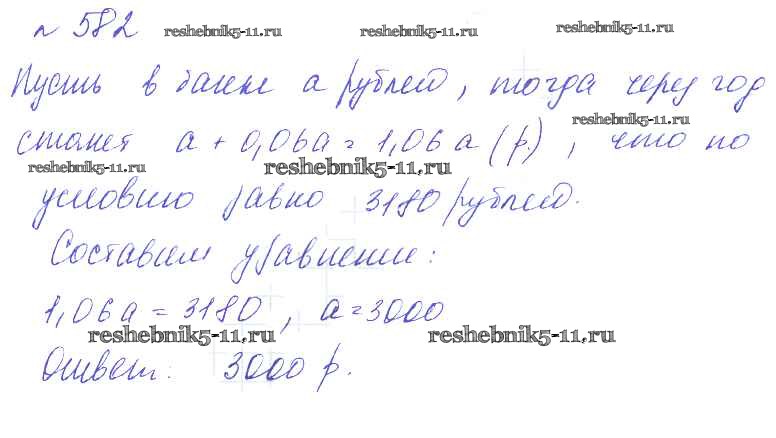 № 582 reshebnik5-11.ru reshebnik5-11.ru reshebnik5-11.ru
Пусть в банке a рублей, тогда через год
reshebnik5-11.ru
станет a + 0,06a = 1,06 a (р.), что по
reshebnik5-11.ru reshebnik5-11.ru
условию равно 3180 рублей.
Составим уравнение:
1,06a = 3180, a = 3000
reshebnik5-11.ru reshebnik5-11.ru
Ответ: 3000 р.